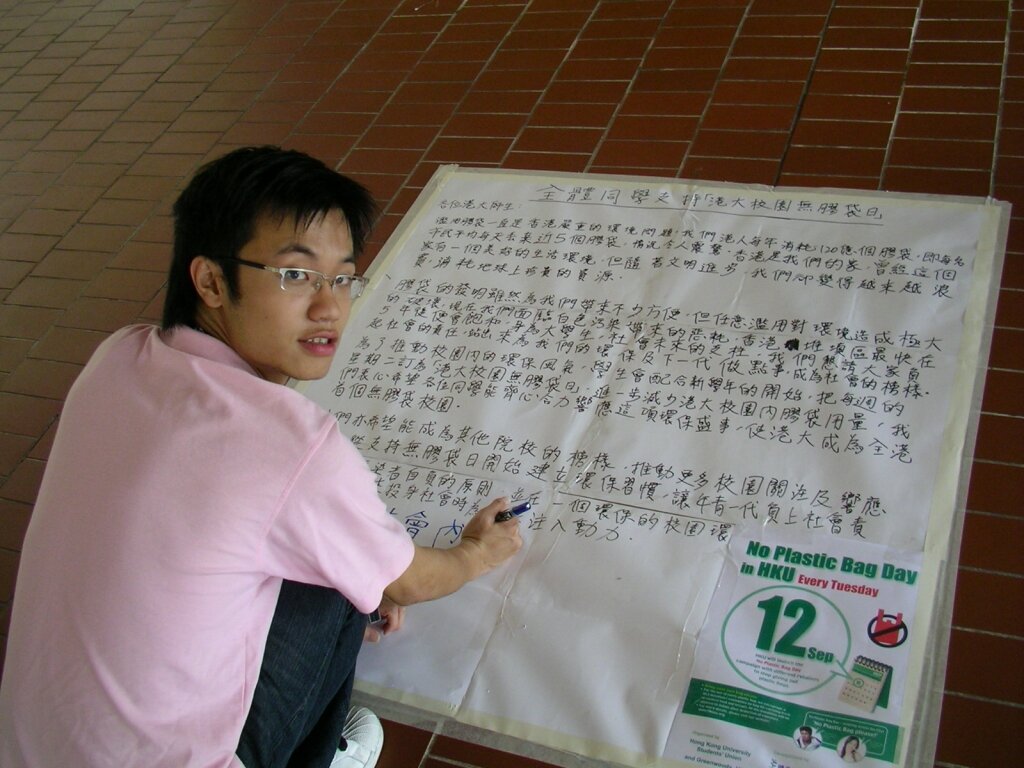 全體同學支持「港大校園無膠袋日」
各位港大師生：
濫用膠袋一直是香港嚴重的環境問題，我們港人每年消耗120億個膠袋，即每名
市民平均每天丟棄近5個膠袋，情況令人震驚。香港是我們的家，曾經這個
家有一個美好的生活環境，但隨著文明進步，我們卻變得越來越浪
費，消耗地球上珍貴的資源。
膠袋的發明雖然為我們帶來不少方便，但任意濫用對環境造成極大
的破壞，現在我們面臨白色污染帶來的惡耗，香港堆填區最快在
5年後便會飽和。身為大學生，社會未來的支柱，我們想請大家肩
起社會的責任，站出來為我們的環保及下一代做點事，成為社會的榜樣。
為了推動校園內的環保風氣，學生會配合新學年的開始，把每週的
星期二訂為「港大校園無膠袋日」，進一步減少港大校園內膠袋用量，我
們衷心希望各位同學能齊心合力響應這項環保盛事，使港大成為全港
首個無膠袋校園。
們亦希望能成為其他院校的榜樣，推動更多校園關注及響應
支持無膠袋日開始建立環保習慣，讓年青一代負上社會責
者自負的原則，並在一個環保的校園環
投身社會時為
會內 注入動力。
No Plastic Bag Day
in HKU Every Tuesday
12 Sep
HKU will launch the
No Plastic Bag Day
campaign with different retailers
to stop giving out
plastic bags
No Plastic Bag please!
Organized by
Hong Kong University
Students' Union
and Greenwoods